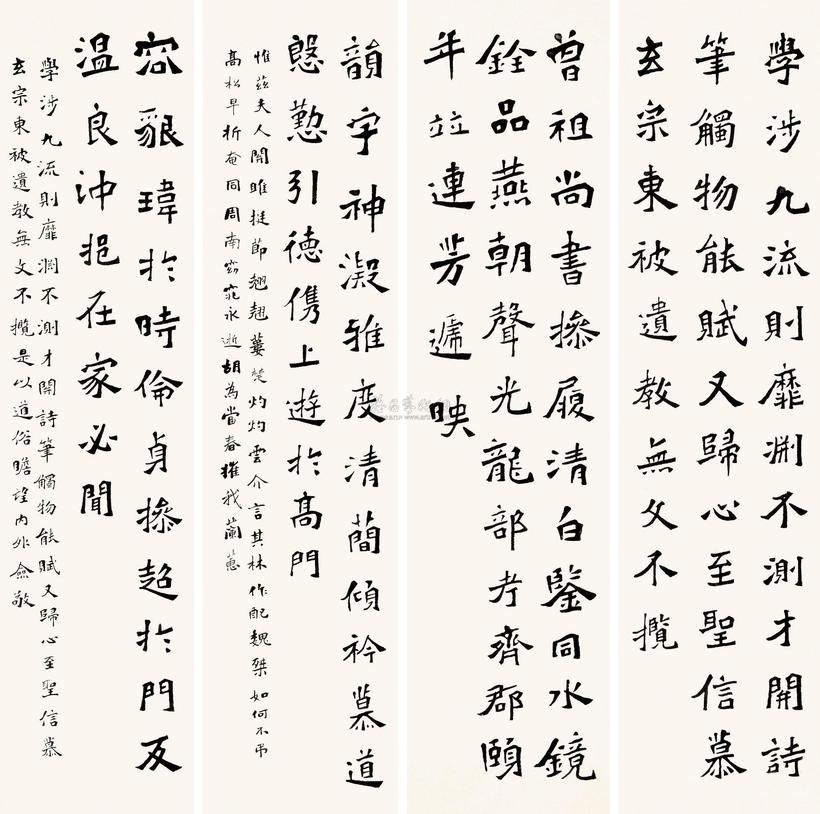 學涉九流則靡淵不測才開詩
筆觸物能賦又歸心至聖信慕
玄宗東被遺教無文不攬
曾祖尚書操履清白鑒同水鏡
銓品燕朝聲光龍部考齊郡頤
年竝連芳遞映
韻宇神凝雅度清簡傾衿慕道
慇懃引德儁上遊於高門
惟茲夫人開雎挺節翹翹蔞楚灼灼雲介言其林作配魏桀如何不弔
高松早折奄同周南窈窕永逝胡為當春摧我蘭蕙
容貌瑋於時倫貞操超於門友
溫良沖挹在家必聞
學涉九流則靡淵不測才開詩筆觸物能賦又歸心至聖信慕
玄宗東被遺教無文不攬是以道俗瞻望內外僉敬